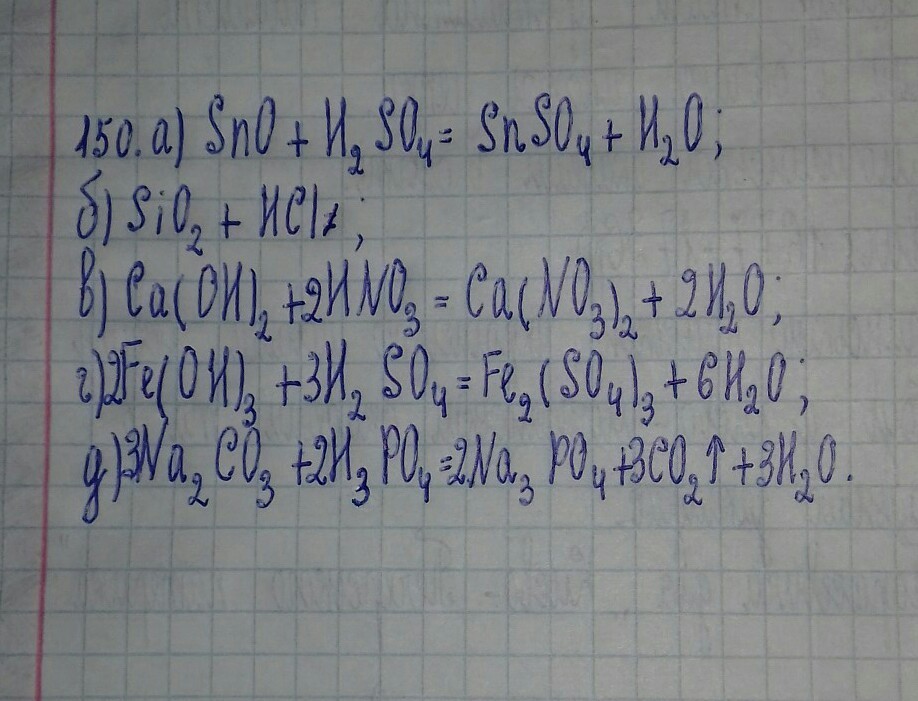 150. а) SnO + H₂SO₄ = SnSO₄ + H₂O;
б) SiO₂ + HCl ≠;
в) Ca(OH)₂ + 2HNO₃ = Ca(NO₃)₂ + 2H₂O;
г) 2Fe(OH)₃ + 3H₂SO₄ = Fe₂(SO₄)₃ + 6H₂O;
д) 3Na₂CO₃ + 2H₃PO₄ = 2Na₃PO₄ + 3CO₂↑ + 3H₂O.